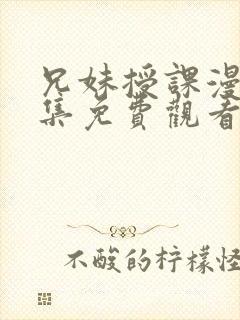 兄妹授課漫
集免費觀看
不酸的柠檬怪